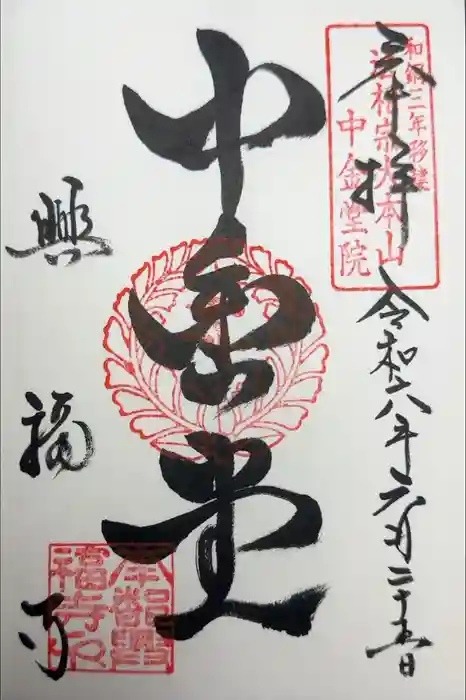 奉拝
和銅三年移
法相宗大本山
中金堂院
令和六年六月二十五日
中金堂
興福寺
南都興
福寺印